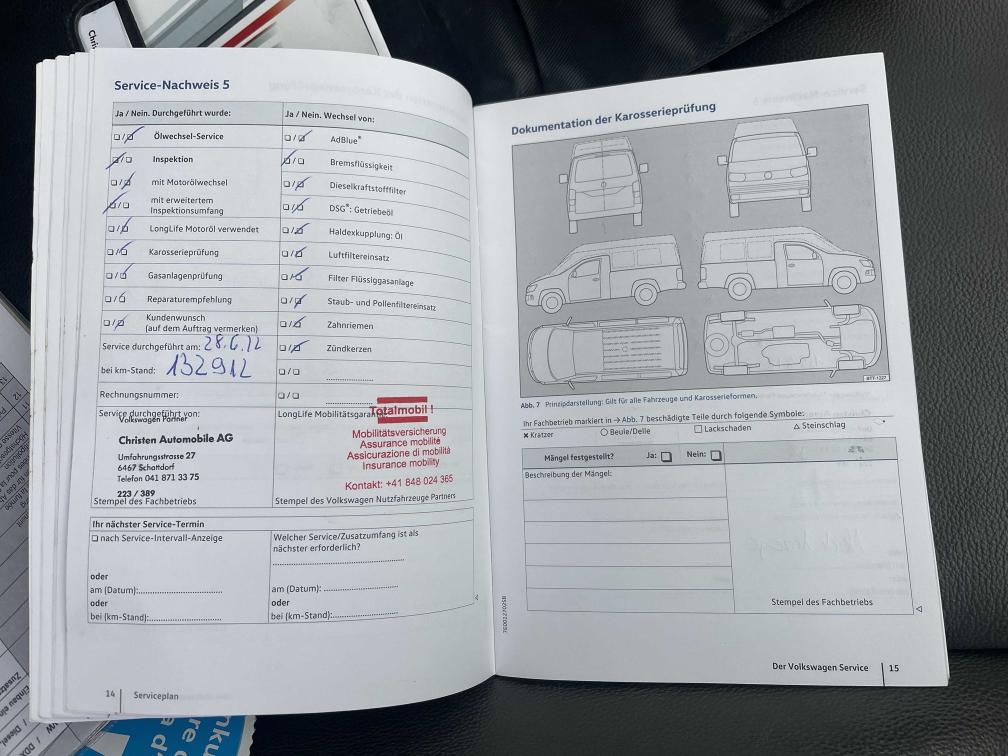 Service-Nachweis 5
Ja / Nein. Durchgeführt wurde:
Ölwechsel-Service
Inspektion
mit Motorölwechsel
mit erweitertem
Inspektionsumfang
LongLife Motoröl verwendet
Karosserieprüfung
Gasanlagenprüfung
Reparaturempfehlung
Kundenwunsch
(auf dem Auftrag vermerken)
Service durchgeführt am: 28.6.22
bei km-Stand: 132912
Rechnungsnummer:
Ja / Nein. Wechsel von:
AdBlue®
Bremsflüssigkeit
Dieselkraftstofffilter
DSG®: Getriebeöl
Haldexkupplung: Öl
Luftfiltereinsatz
Filter Flüssiggasanlage
Staub- und Pollenfiltereinsatz
Zahnriemen
Zündkerzen
Service durchgeführt von:
Volkswagen Partner
Christen Automobile AG
Umfahrungsstrasse 27
6467 Schattdorf
Telefon 041 871 33 75
223 / 389
Stempel des Fachbetriebs
LongLife Mobilitätsgarantie
Totalmobil !
Mobilitätsversicherung
Assurance mobilité
Assicurazione di mobilità
Insurance mobility
Kontakt: +41 848 024 365
Stempel des Volkswagen Nutzfahrzeuge Partners
Ihr nächster Service-Termin
nach Service-Intervall-Anzeige
oder
am (Datum):
oder
bei (km-Stand):
Welcher Service/Zusatzumfang ist als
nächster erforderlich?
am (Datum):
oder
bei (km-Stand):
14 Serviceplan
Dokumentation der Karosserieprüfung
BTT-1227
Abb. 7 Prinzipdarstellung: Gilt für alle Fahrzeuge und Karosserieformen.
Ihr Fachbetrieb markiert in → Abb. 7 beschädigte Teile durch folgende Symbole:
Kratzer Beule/Delle Lackschaden Steinschlag
Mängel festgestellt? Ja: Nein:
Beschreibung der Mängel:
Stempel des Fachbetriebs
Der Volkswagen Service 15